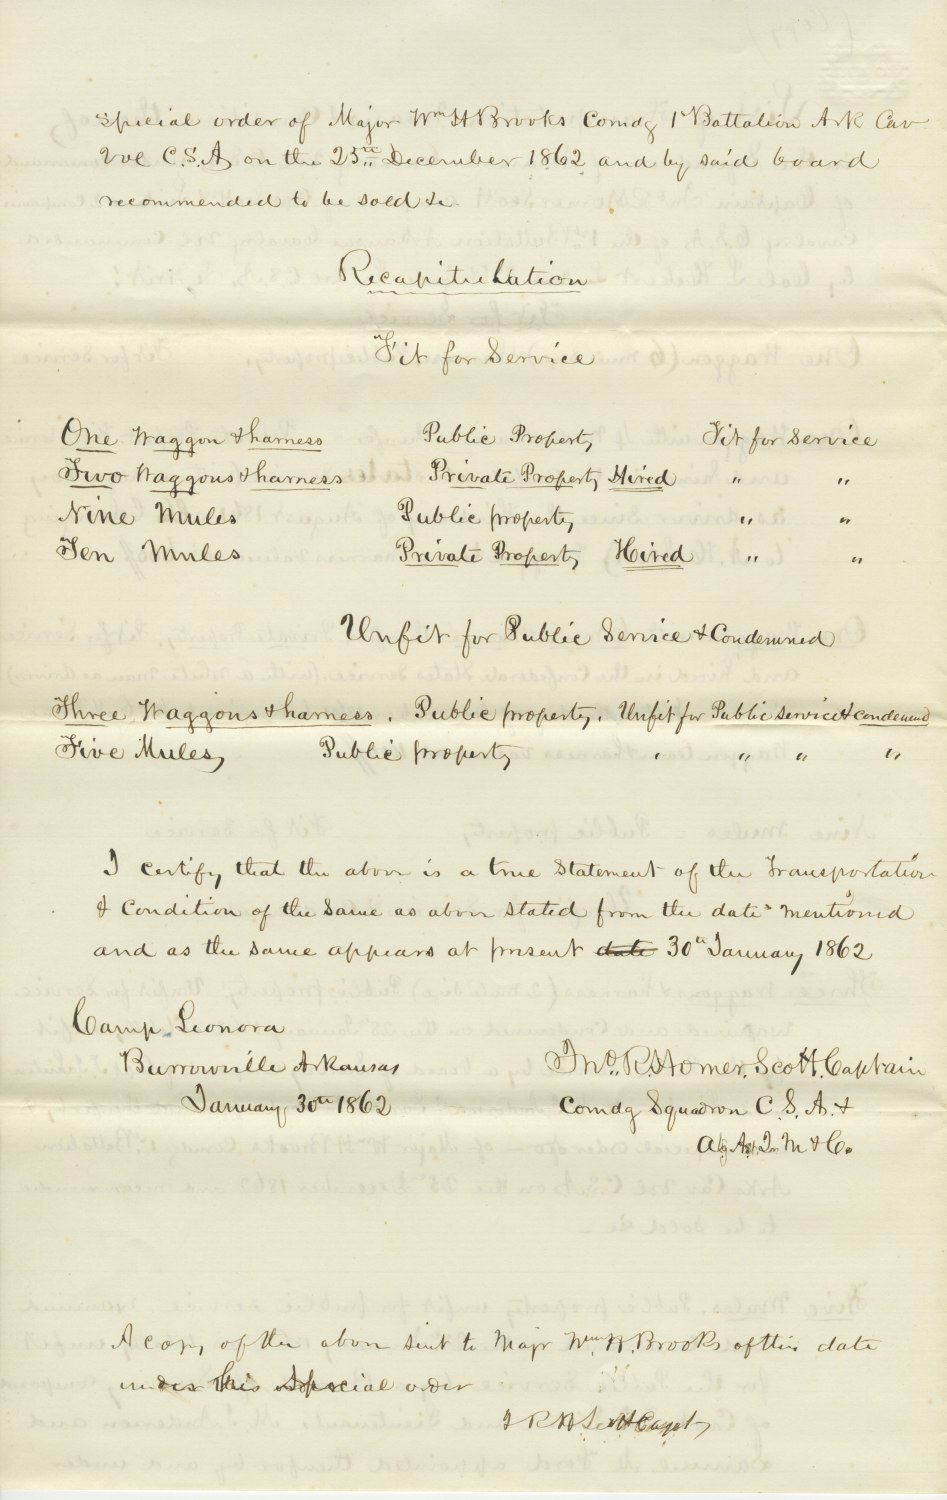 special order of Major Wm H Brooks Comdg 1st Battalion Ark Cav
Vol C.S.A on the 25th December 1862 and by said board
recommended to be sold &c.
Recapitulation
Fit for Service
One Waggon & harness Public Property Fit for Service
Two Waggons & harness Private Property Hired " "
Nine Mules Public property " "
Ten Mules Private Property Hired " "
Unfit for Public Service & Condemned
Three Waggons & harness. Public property. Unfit for Public service & condemned
Five Mules, Public property " " " "
I certify that the above is a true Statement of the Transportation
& Condition of the Same as above stated from the dates mentioned
and as the same appears at present date 30th January 1862
Camp Leonora
Burrowville Arkansas
January 30th 1862
Jno. R. Homer. Scott. Captain
Comdg Squadron C. S. A. &
Actg Asst Qr M & C.
A copy of the above sent to Majr Wm. H. Brooks of this date
under his special order
J R H Scott Capt